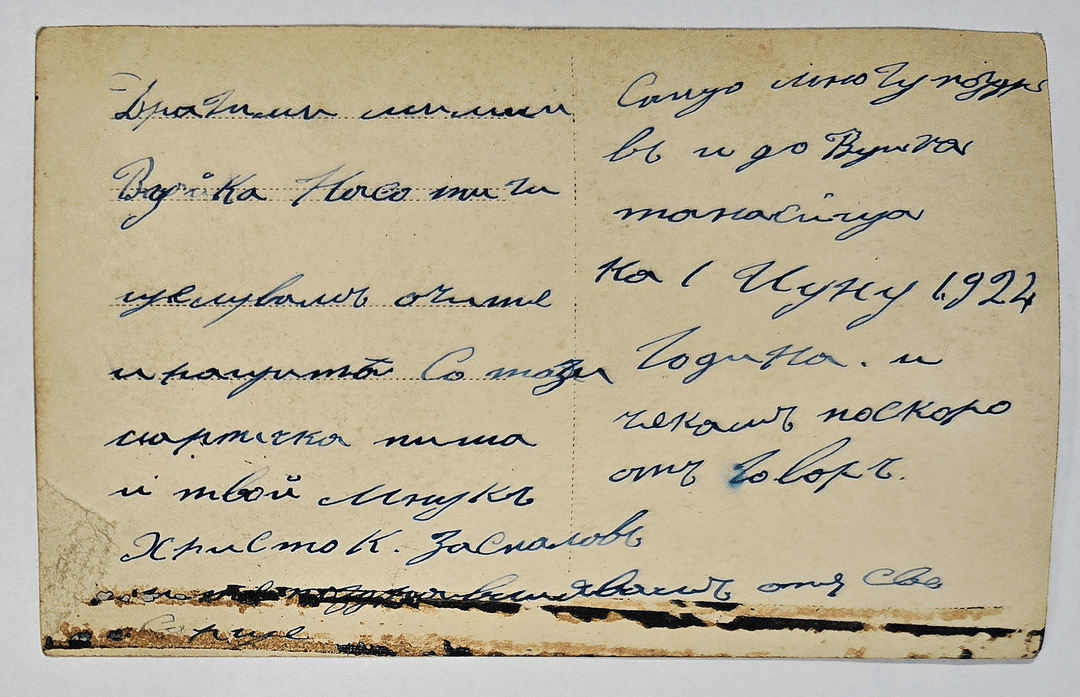 Драгими мили
Вуйка Насо ти ги
целувамъ очите
и рацитѣ Со тази
картичка пиша
и твой Мнукъ
Христо К. Заспаловъ
поздравлявамъ отъ Све
Сърце
Самуо многу поздра
въ и до Вуйна
танасица
на 1 Иуну 1924
Година. и
чекамъ поскоро
отъ Говоръ.